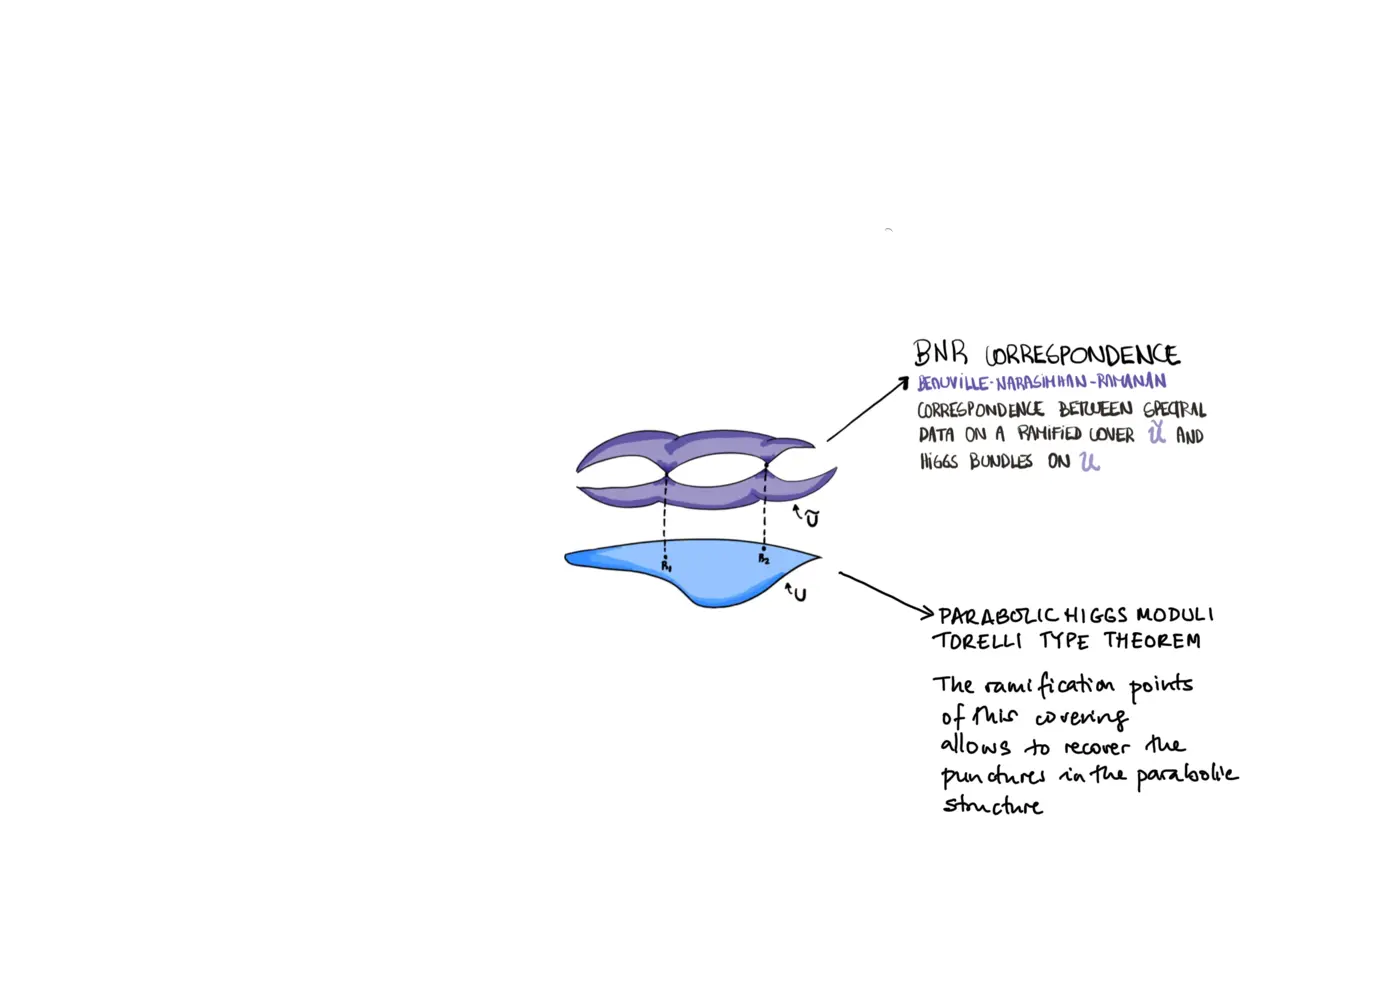 BNR CORRESPONDENCE
BEAUVILLE-NARASIMHAN-RAMANAN
CORRESPONDENCE BETWEEN SPECTRAL
DATA ON A RAMIFIED COVER Ũ AND
HIGGS BUNDLES ON U
Ũ
R₁
R₂
U
PARABOLIC HIGGS MODULI
TORELLI TYPE THEOREM
The ramification points
of this covering
allows to recover the
punctures in the parabolic
structure